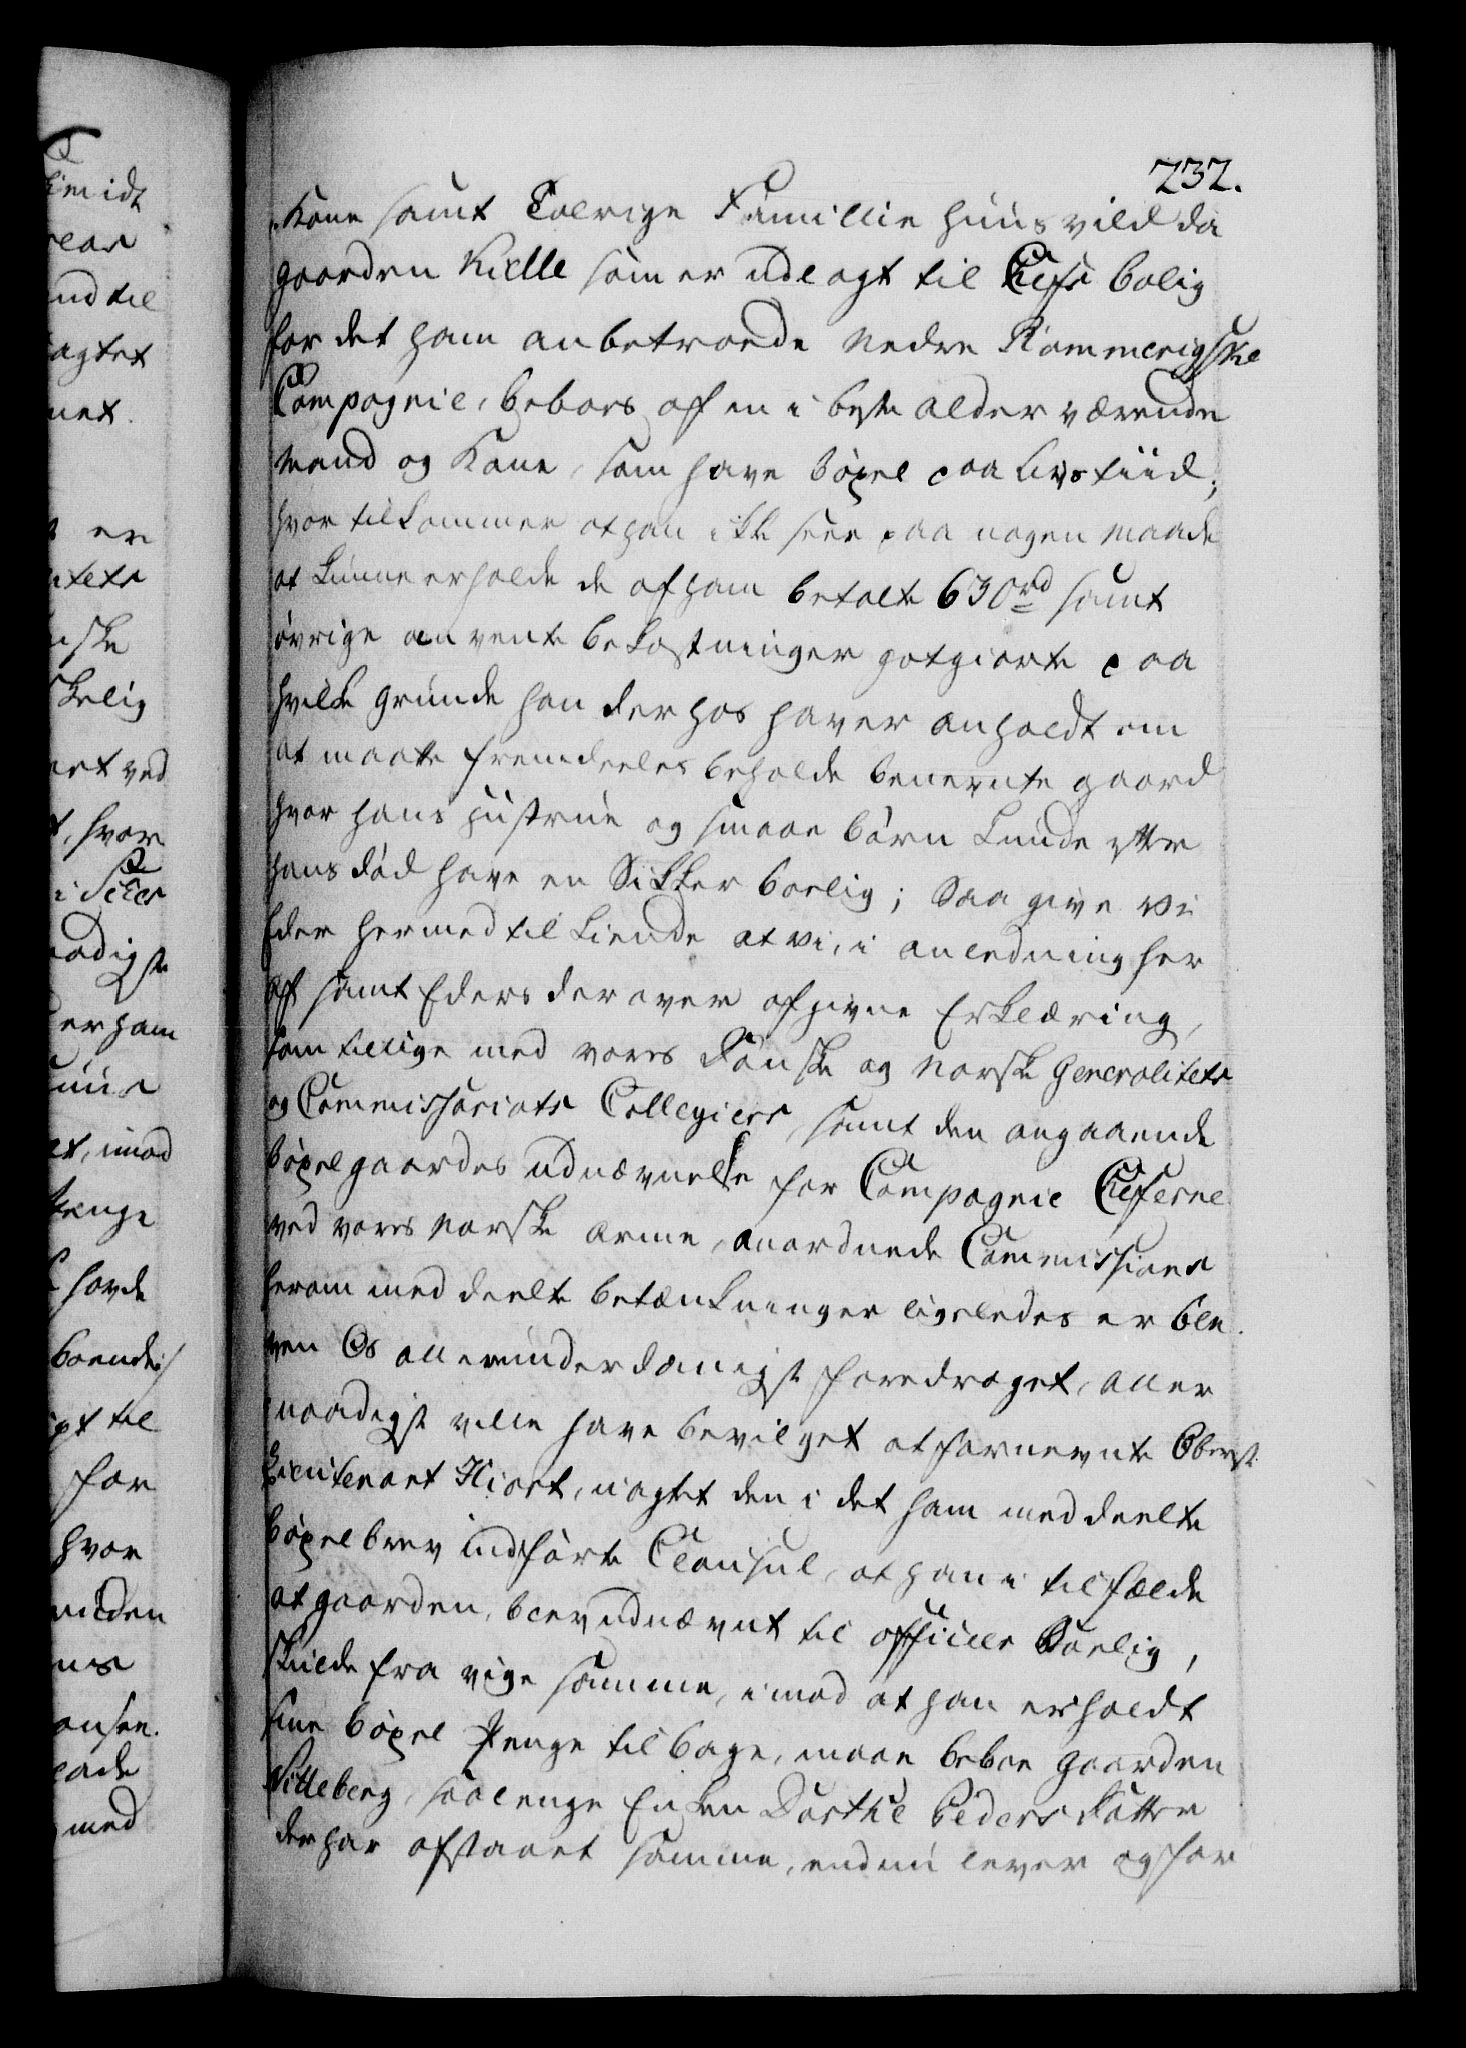 232.
Kone samt Talrige Famillie huusvild da
gaarden Kielle som er udlagt til Chefs bolig
for det ham anbetroede Nedre Rommerigske
Compagnie, beboes af en i beste alder værende
Mand og Kone, som have böxel paa Livstiid;
hvortilkommer at han ikke seer paa nogen Maade
at kunne erholde de af ham betalte 630 rd samt
övrige anvente bekostninger gotgiorte paa
hvilke grunde han derhos haver anholdt om
at maatte fremdeeles beholde benevnte gaard
hvor hans hustrue og smaae börn kunde efter
hans död have en Sikker boelig; Saa give Vi
Eder hermed til kiende at Vi, i anledning her
af samt Eders derover afgivne Erklæring,
som tillige med vores danske og norske Generalitets
og Commissariats Collegiers, samt den angaaende
böxelgaardes udnævnelse for Compagnie Cheferne
ved vores norske arme, anordnede Commissions
herom meddeelte betænkninger ligeledes er ble
ven Os allerunderdanigst foredraget, aller
naadigst ville have bevilget at fornevnte Oberst
Lieutenant Hiort, uagtet den i det ham meddeelte
böxelbrev indförte Clausul, at han i tilfælde
at gaarden blev udnævnt til officeer Boelig,
skulde fra vige samme, imod at han erholdt
sine böxel Penge tilbage, maae beboe gaarden
Nitteberg, saalenge Enken Dorthe Peders datter
der har afstaaet samme, endnu lever og for